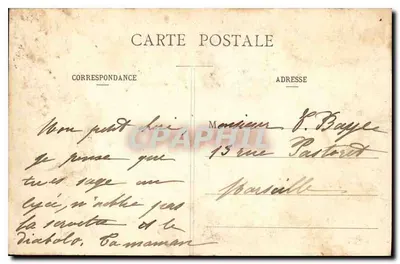 CARTE POSTALE
CORRESPONDANCE
ADRESSE
Mon petit
je pense que
tu es sage au
lycée, n'oublie pas
la serviette et le
diabolo. Ta maman
Monsieur
13 rue Pastoret
Marseille
CPAPHIL